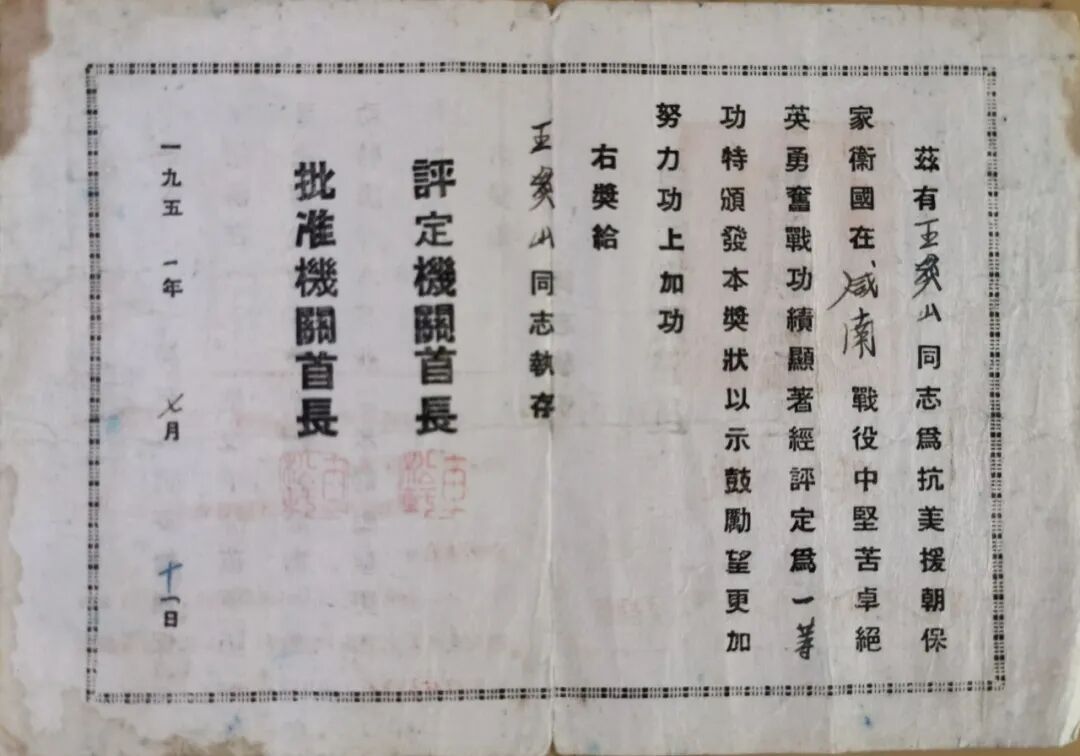 茲有王山同志爲抗美援朝保
家衛國在咸南戰役中堅苦卓絕
英勇奮戰功績顯著經評定爲一等
功特頒發本獎狀以示鼓勵望更加
努力功上加功
右獎給
王山同志執存
評定機關首長
批准機關首長
一九五一年七月十一日